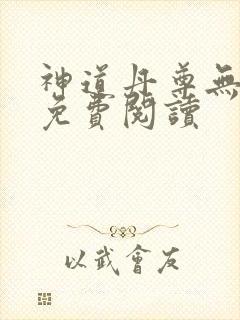 神道丹尊無
免費閱讀
以武會友